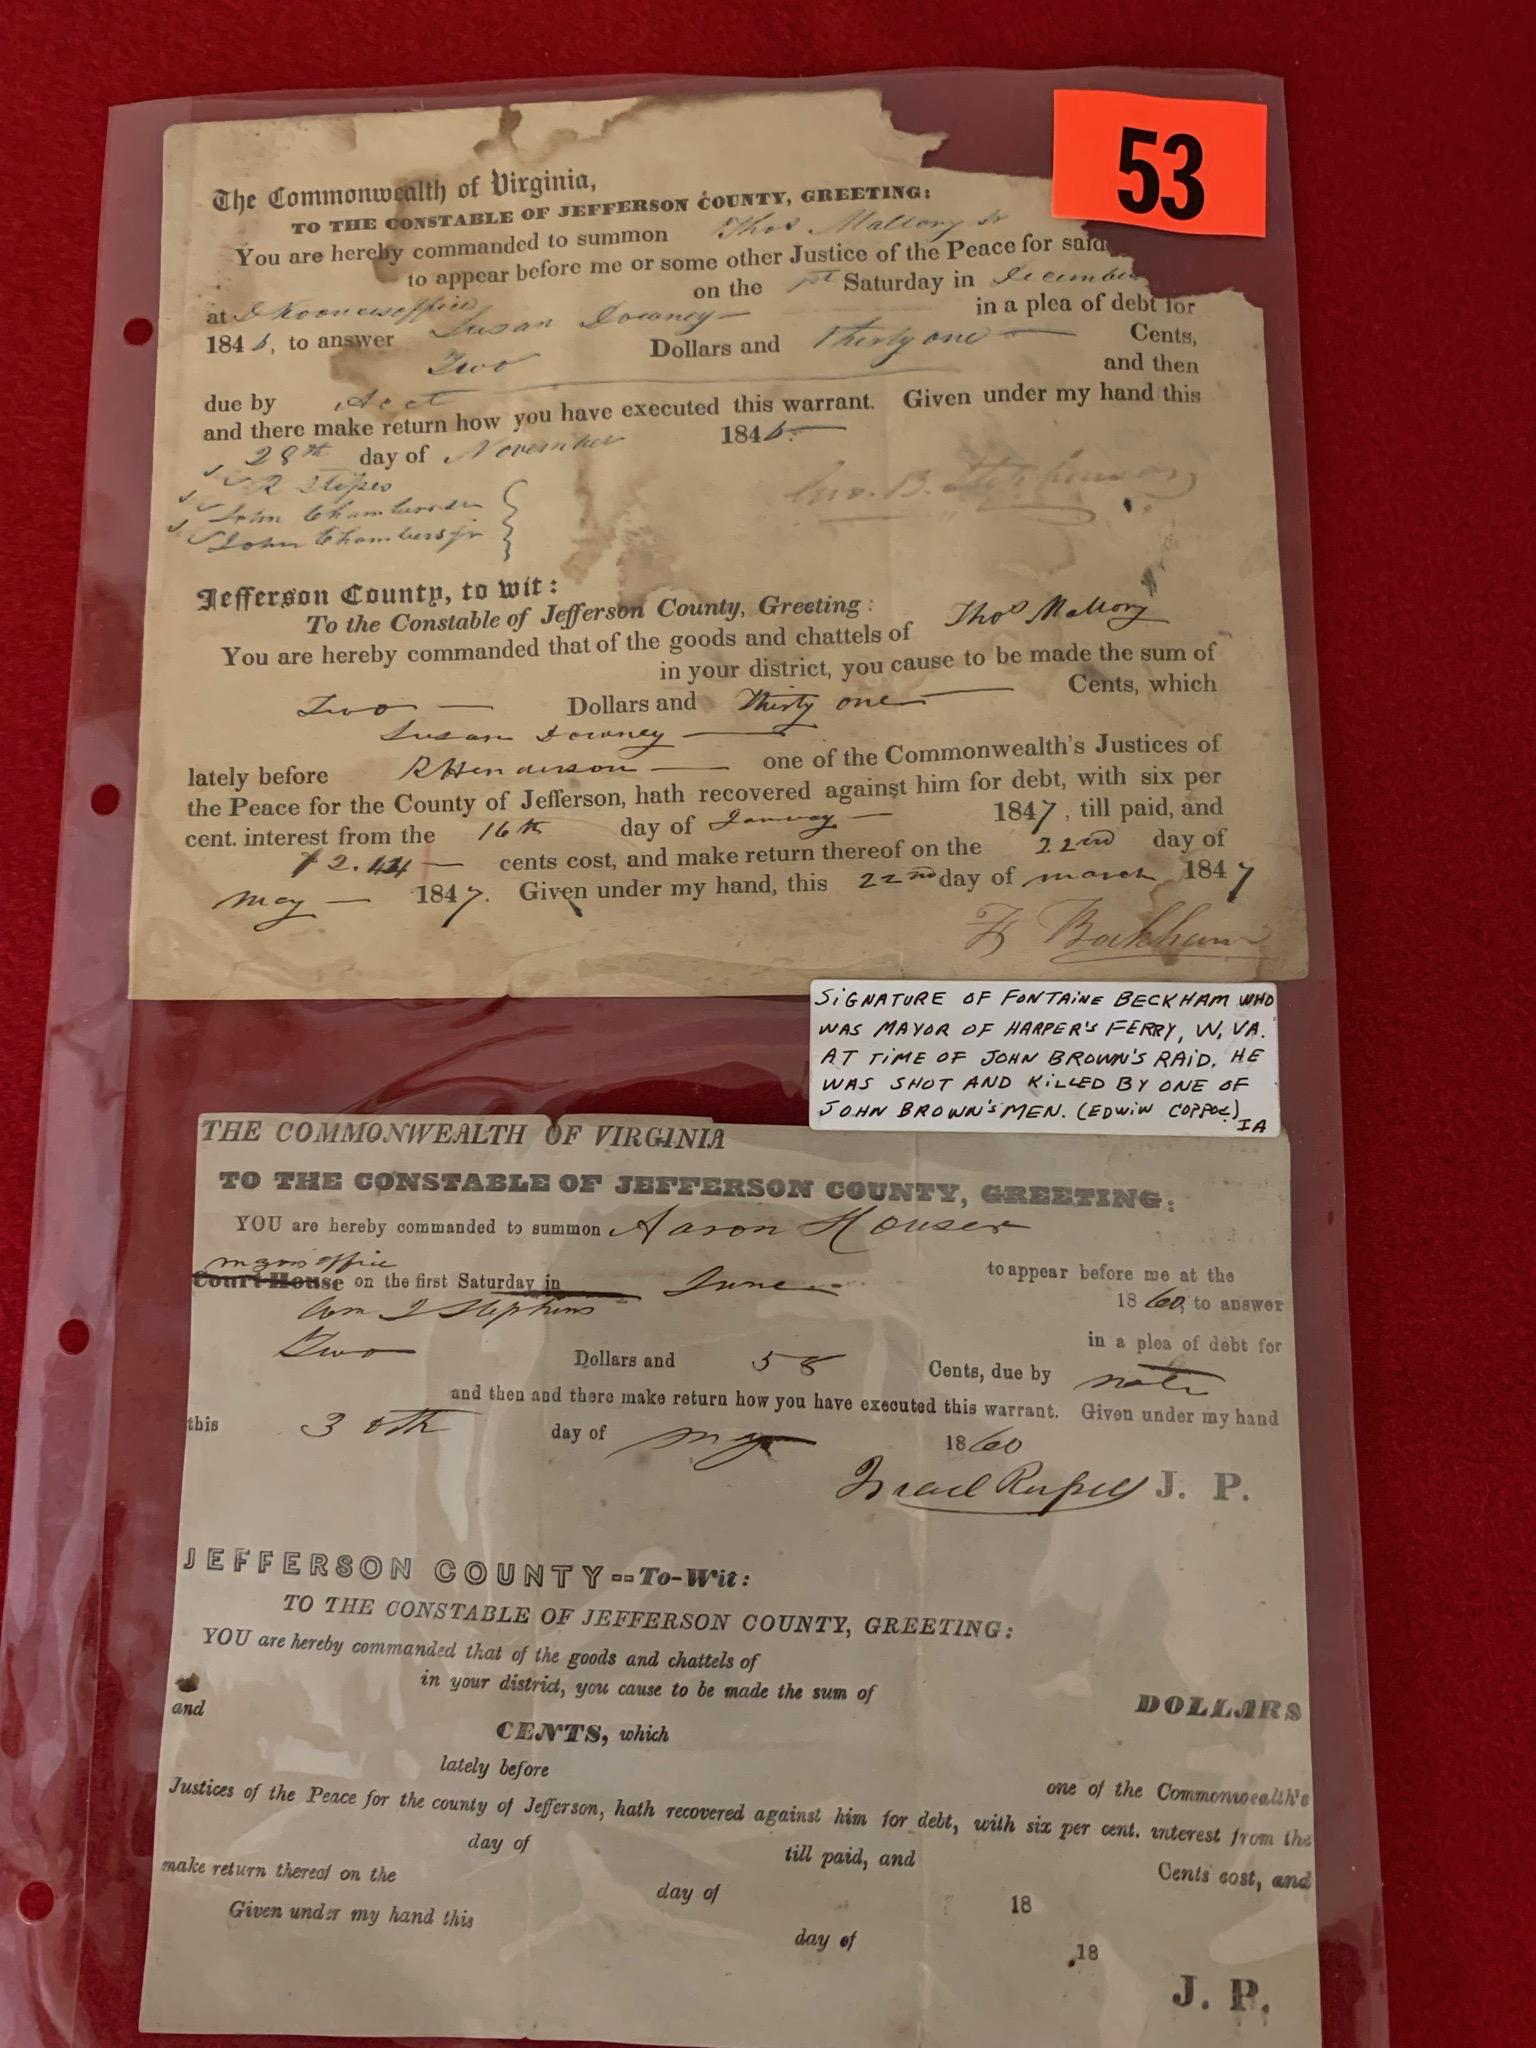 53
The Commonwealth of Virginia,
TO THE CONSTABLE OF JEFFERSON COUNTY, GREETING:
You are hereby commanded to summon Thos Mallory Jr
to appear before me or some other Justice of the Peace for said
at office on the 1st Saturday in December
1846, to answer Susan Downey in a plea of debt for
Two Dollars and Thirty one Cents,
due by Acct and then
and there make return how you have executed this warrant. Given under my hand this
28th day of November 1846.
John Chambers Jr
Jefferson County, to wit:
To the Constable of Jefferson County, Greeting:
You are hereby commanded that of the goods and chattels of Thos Mallory
in your district, you cause to be made the sum of
Two Dollars and Thirty one Cents, which
Susan Downey
lately before R Henderson one of the Commonwealth's Justices of
the Peace for the County of Jefferson, hath recovered against him for debt, with six per
cent. interest from the 16th day of January 1847, till paid, and
$2.44 cents cost, and make return thereof on the 22nd day of
May 1847. Given under my hand, this 22nd day of march 1847
F Beckham
SIGNATURE OF FONTAINE BECKHAM WHO
WAS MAYOR OF HARPER'S FERRY, W, VA.
AT TIME OF JOHN BROWN'S RAID. HE
WAS SHOT AND KILLED BY ONE OF
JOHN BROWN'S MEN. (EDWIN COPPOC)
IA
THE COMMONWEALTH OF VIRGINIA
TO THE CONSTABLE OF JEFFERSON COUNTY, GREETING:
YOU are hereby commanded to summon Aaron Houser
office to appear before me at the
Court House on the first Saturday in June 1860, to answer
Wm J Stephens in a plea of debt for
Two Dollars and 58 Cents, due by note
and then and there make return how you have executed this warrant. Given under my hand
this 30th day of May 1860
Israel Russell J. P.
JEFFERSON COUNTY--To-Wit:
TO THE CONSTABLE OF JEFFERSON COUNTY, GREETING:
YOU are hereby commanded that of the goods and chattels of
in your district, you cause to be made the sum of DOLLARS
and CENTS, which
lately before one of the Commonwealth's
Justices of the Peace for the county of Jefferson, hath recovered against him for debt, with six per cent. interest from the
day of till paid, and Cents cost, and
make return thereof on the day of 18
Given under my hand this day of 18
J. P.